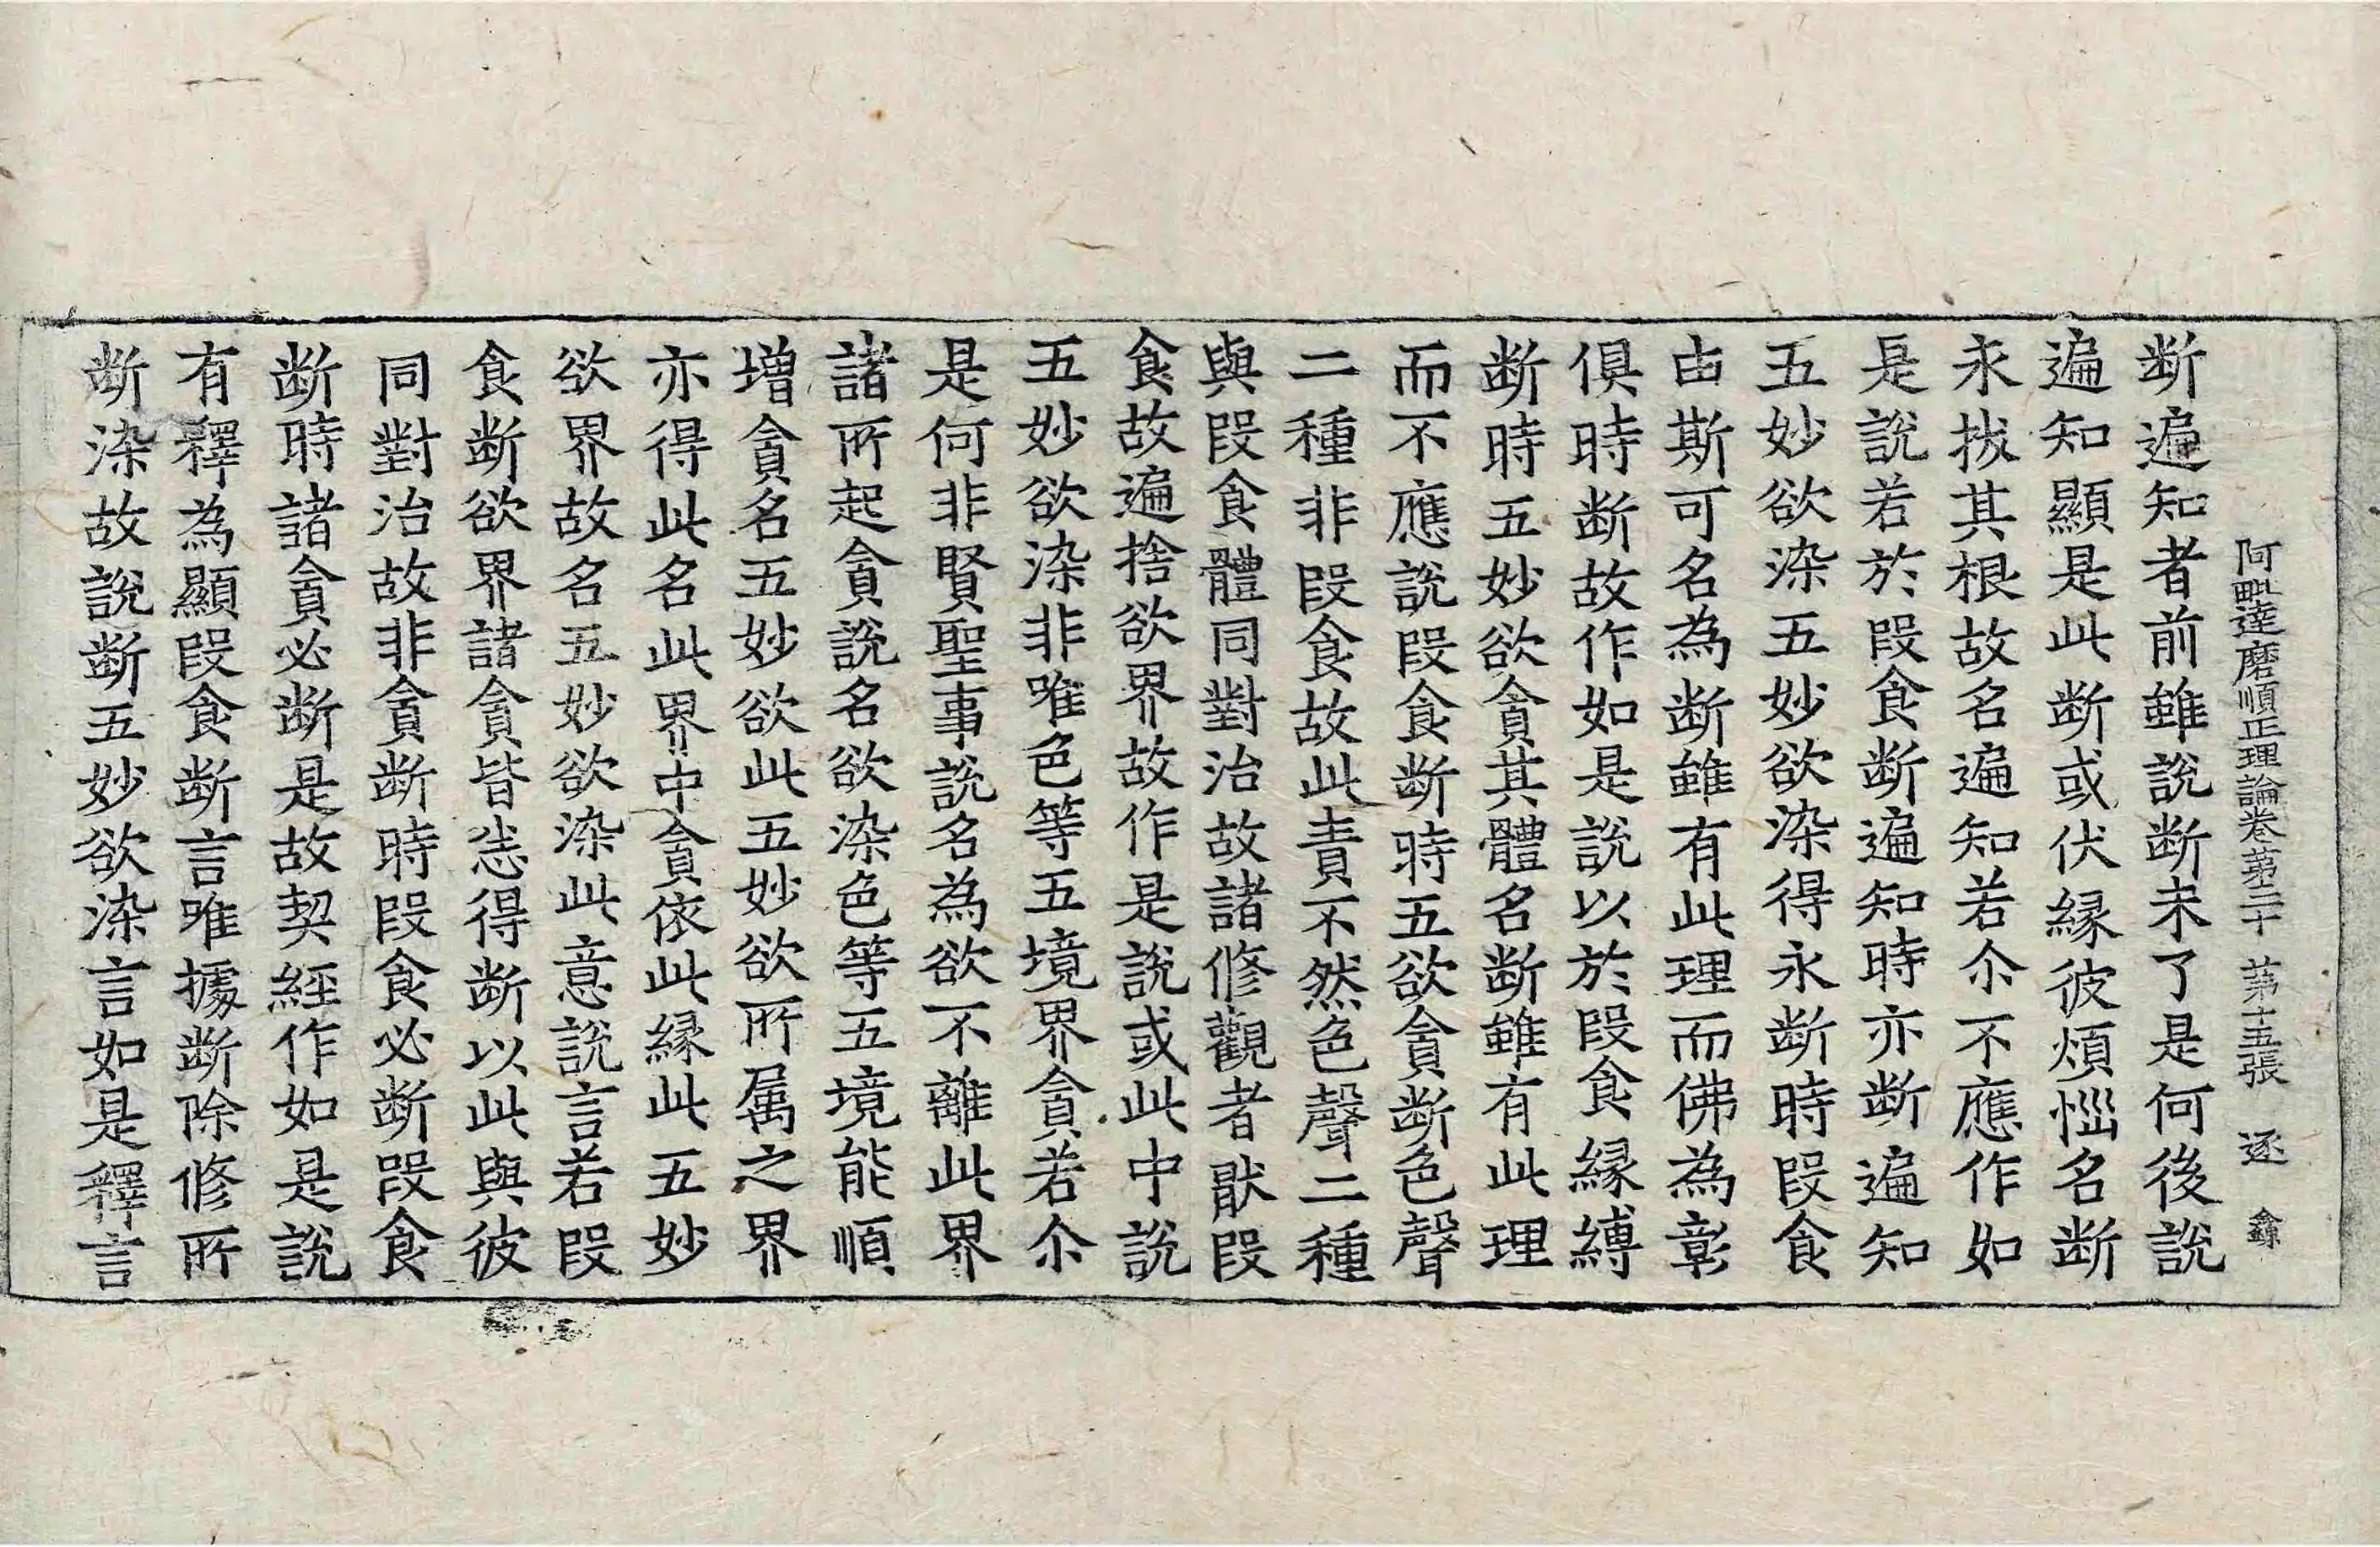 阿毗達磨順正理論卷苐三十 苐十五張 逐 𨥥
断遍知者前雖說断未了是何後說
遍知顯是此断或伏縁彼煩惱名断
永拔其根故名遍知若尒不應作如
是說若於段食断遍知時亦断遍知
五妙欲染五妙欲染得永断時段食
由斯可名為断雖有此理而佛為彰
俱時断故作如是說以於段食縁縛
断時五妙欲貪其體名断雖有此理
而不應說段食断時五欲貪断色聲
二種非段食故此責不然色聲二種
與段食體同對治故諸修觀者猒段
食故遍捨欲界故作是說或此中說
五妙欲染非唯色等五境界貪若尒
是何非賢聖事說名為欲不離此界
諸所起貪說名欲染色等五境能順
增貪名五妙欲此五妙欲所属之界
亦得此名此界中貪依此縁此五妙
欲界故名五妙欲染此意說言若段
食断欲界諸貪皆悉得断以此與彼
同對治故非貪断時段食必断段食
断時諸貪必断是故契經作如是說
有釋為顯段食断言唯據断除修所
断染故說断五妙欲染言如是釋言